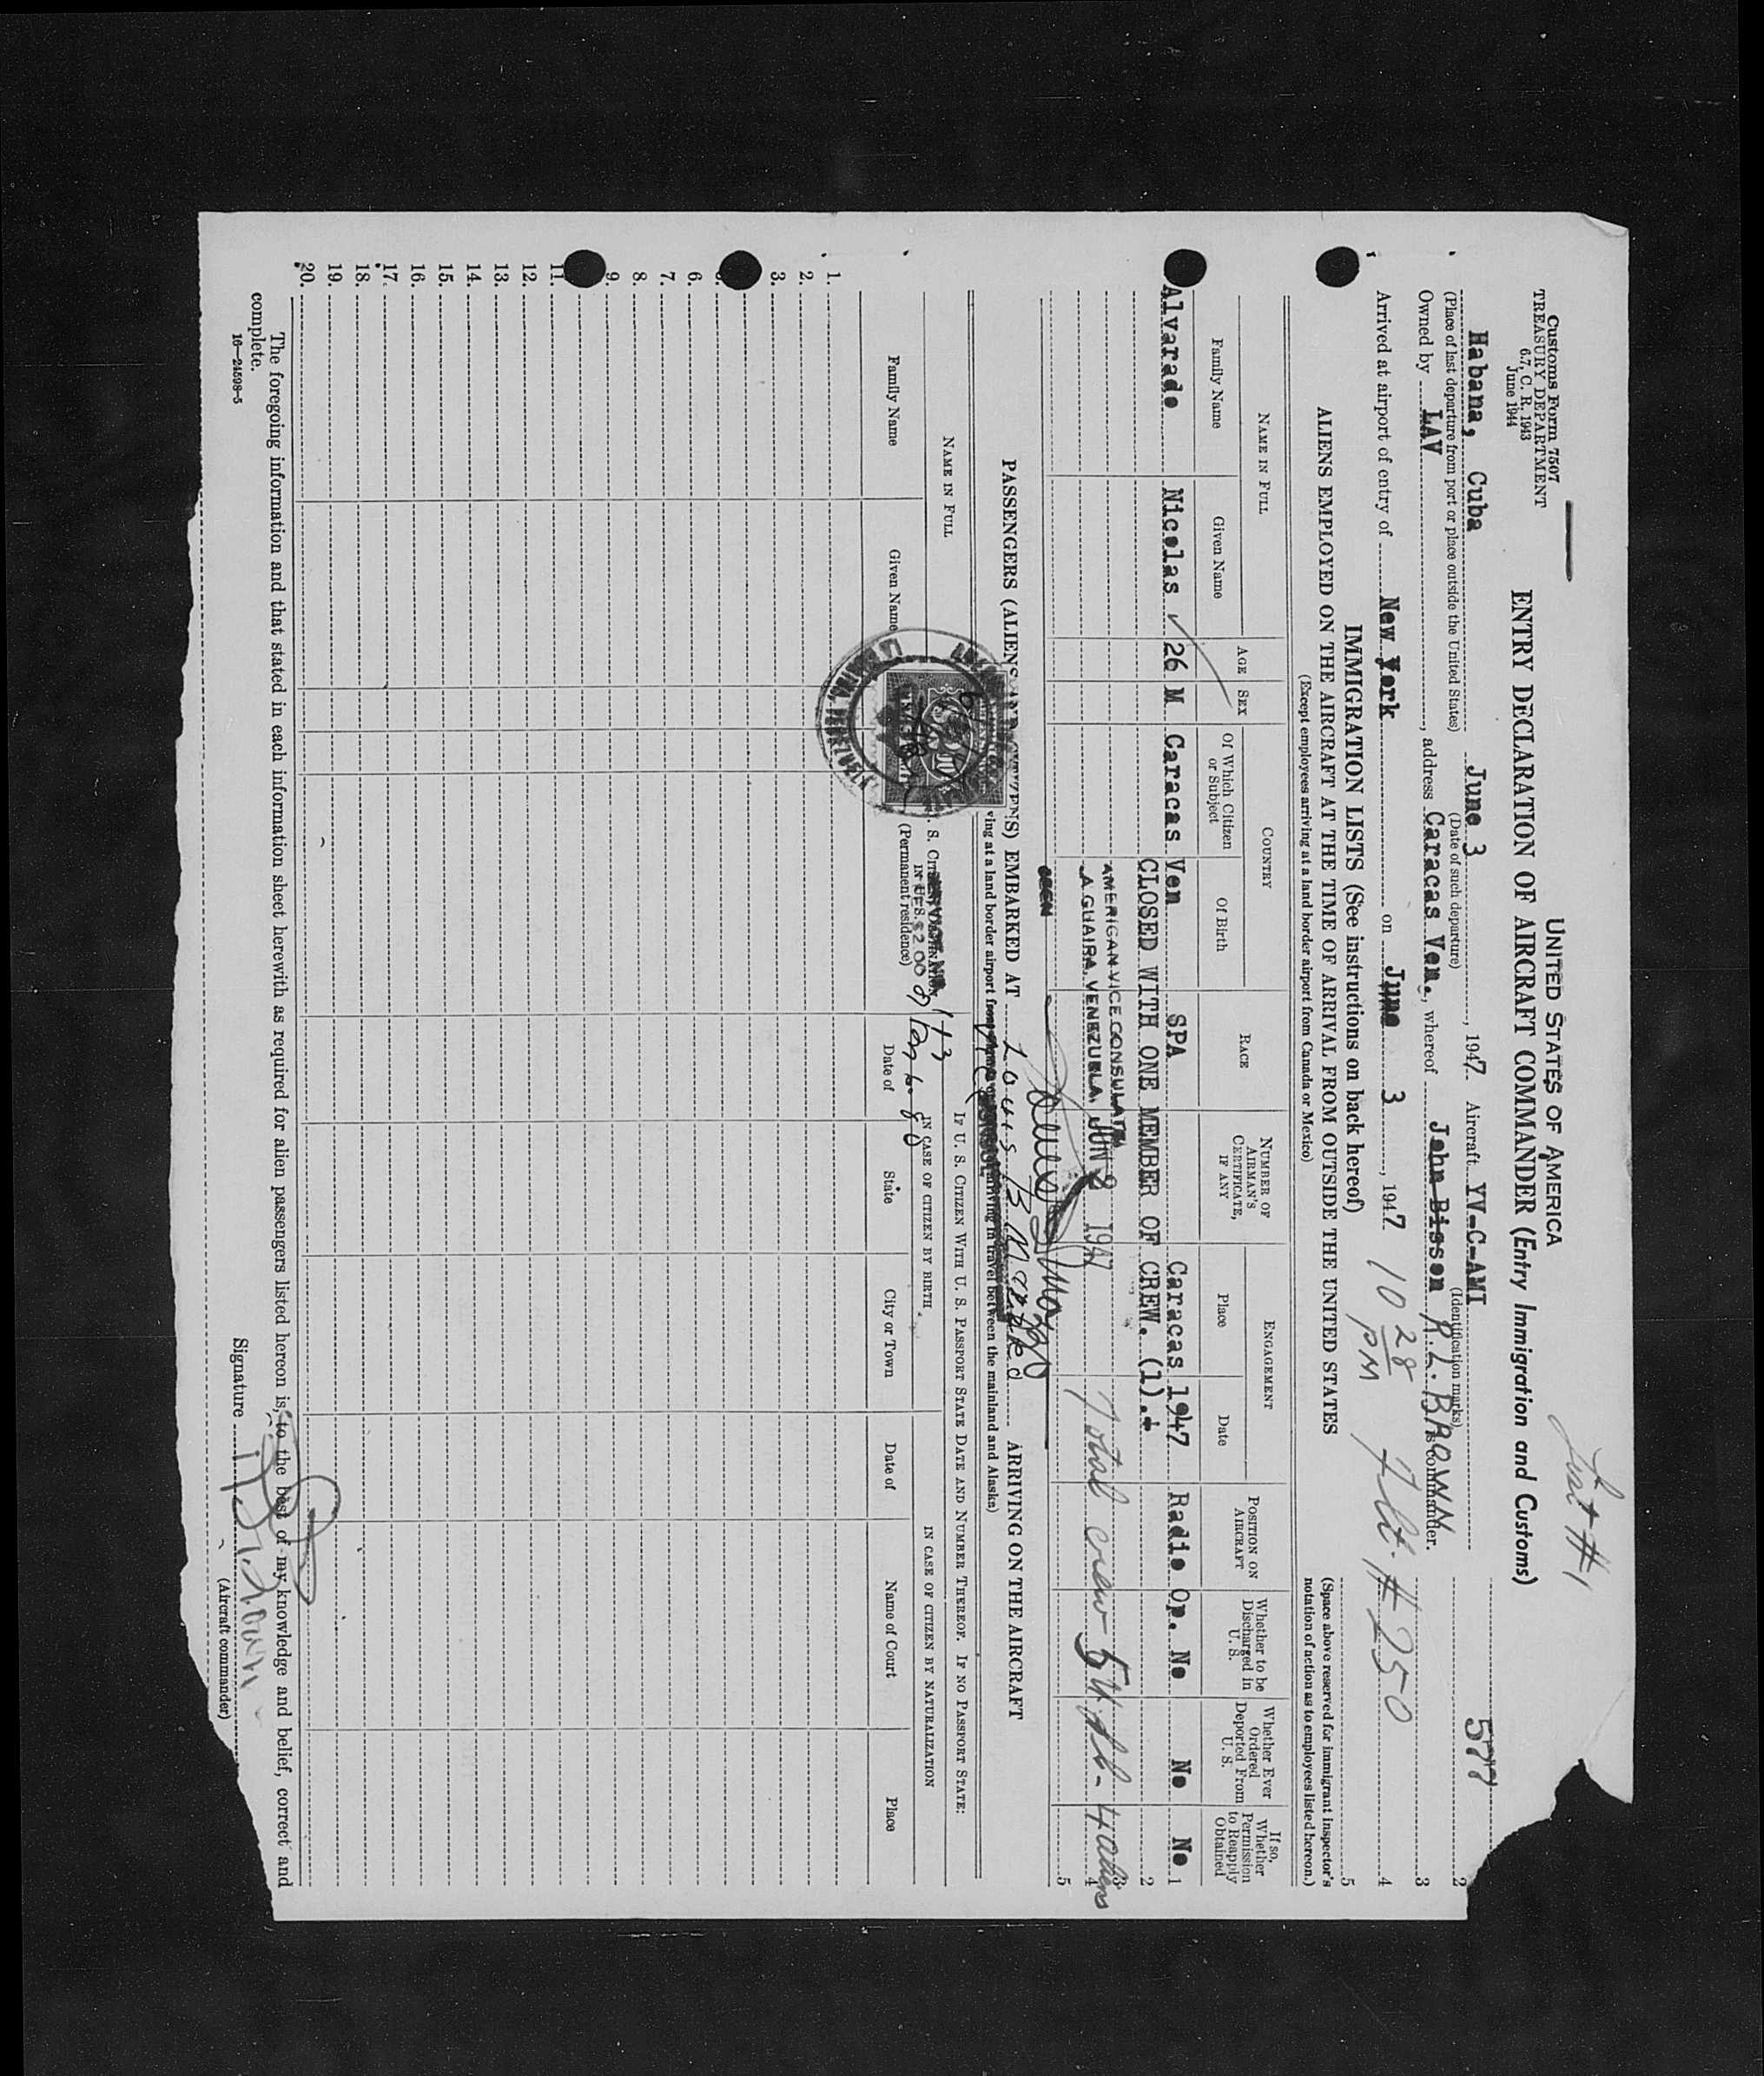 List #1
Customs Form 7507
TREASURY DEPARTMENT
6.7, C. R. 1943
June 1944
UNITED STATES OF AMERICA
ENTRY DECLARATION OF AIRCRAFT COMMANDER (Entry Immigration and Customs)
577
Habana, Cuba June 3, 1947 Aircraft YV-C-AMI 2
(Place of last departure from port or place outside the United States) (Date of such departure) (Identification marks)
Owned by LAV, address Caracas Ven., whereof John Bisson R.L. BROWN is commander. 3
Arrived at airport of entry of New York on June 3, 1947 10 28 PM Flt. # 250 4
IMMIGRATION LISTS (See instructions on back hereof) 5
ALIENS EMPLOYED ON THE AIRCRAFT AT THE TIME OF ARRIVAL FROM OUTSIDE THE UNITED STATES
(Except employees arriving at a land border airport from Canada or Mexico)
(Space above reserved for immigrant inspector's notation of action as to employees listed hereon.)
NAME IN FULL
Family Name
Given Name
AGE
SEX
COUNTRY
Of Which Citizen or Subject
Of Birth
RACE
NUMBER OF AIRMAN'S CERTIFICATE, IF ANY
ENGAGEMENT
Place
Date
POSITION ON AIRCRAFT
Whether to be Discharged in U. S.
Whether Ever Ordered Deported From U. S.
If so, Whether Permission to Reapply Obtained
Alvarado Nicolas ✓ 26 M Caracas Ven SPA Caracas 1947 Radio Op. No No No 1
CLOSED WITH ONE MEMBER OF CREW. (1). 2
AMERICAN VICE CONSULATE 3
LA GUAIRA, VENEZUELA, JUN 2 1947 Total crew 5 4 aliens 4
5
PASSENGERS (ALIENS AND CITIZENS) EMBARKED AT Louis B Mazzeo ARRIVING ON THE AIRCRAFT
ving at a land border airport travel between the mainland and Alaska)
NAME IN FULL
Family Name
Given Name
(Permanent residence)
IF U. S. CITIZEN WITH U. S. PASSPORT STATE DATE AND NUMBER THEREOF. IF NO PASSPORT STATE:
IN CASE OF CITIZEN BY BIRTH
IN CASE OF CITIZEN BY NATURALIZATION
Date of
State
City or Town
Date of
Name of Court
Place
1.
2.
3.
6.
7.
8.
9.
11.
12.
13.
14.
15.
16.
17.
18.
19.
20.
The foregoing information and that stated in each information sheet herewith as required for alien passengers listed hereon is, to the best of my knowledge and belief, correct and
complete.
16—24598-5
Signature
(Aircraft commander)